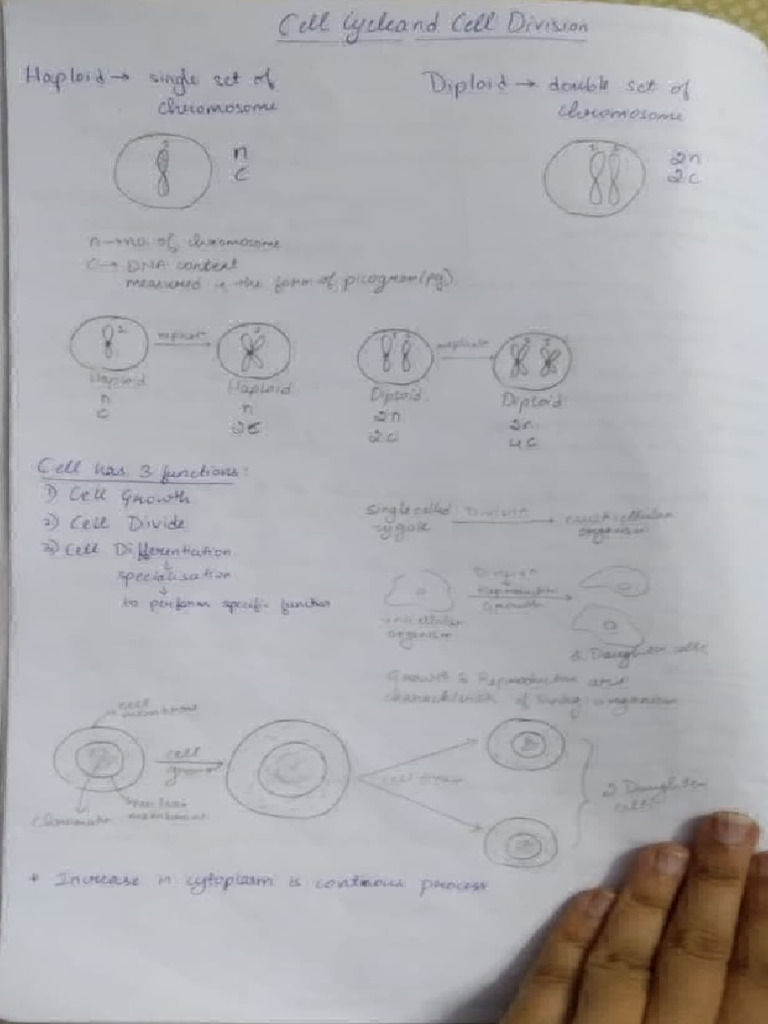 Cell Cycle and Cell Division
Haploid → single set of
chromosome
Diploid → double set of
chromosome
n
c
2n
2c
n → no. of chromosome
c → DNA content
measured in the form of picogram (pg)
replicate
Haploid
n
c
Haploid
n
2c
replicate
Diploid
2n
2c
Diploid
2n
4c
Cell has 3 functions:
1) Cell Growth
2) Cell Divide
3) Cell Differentiation
↓
specialisation
↓
to perform specific function
Single celled
zygote
Division
→
organism
unicellular
organism
Division
Reproduction
Growth
2 Daughter cells
Growth & Reproduction are
of living organism
cell
membrane
cell
growth
nuclear
membrane
2 Daughter
cells
* Increase in cytoplasm is continous process